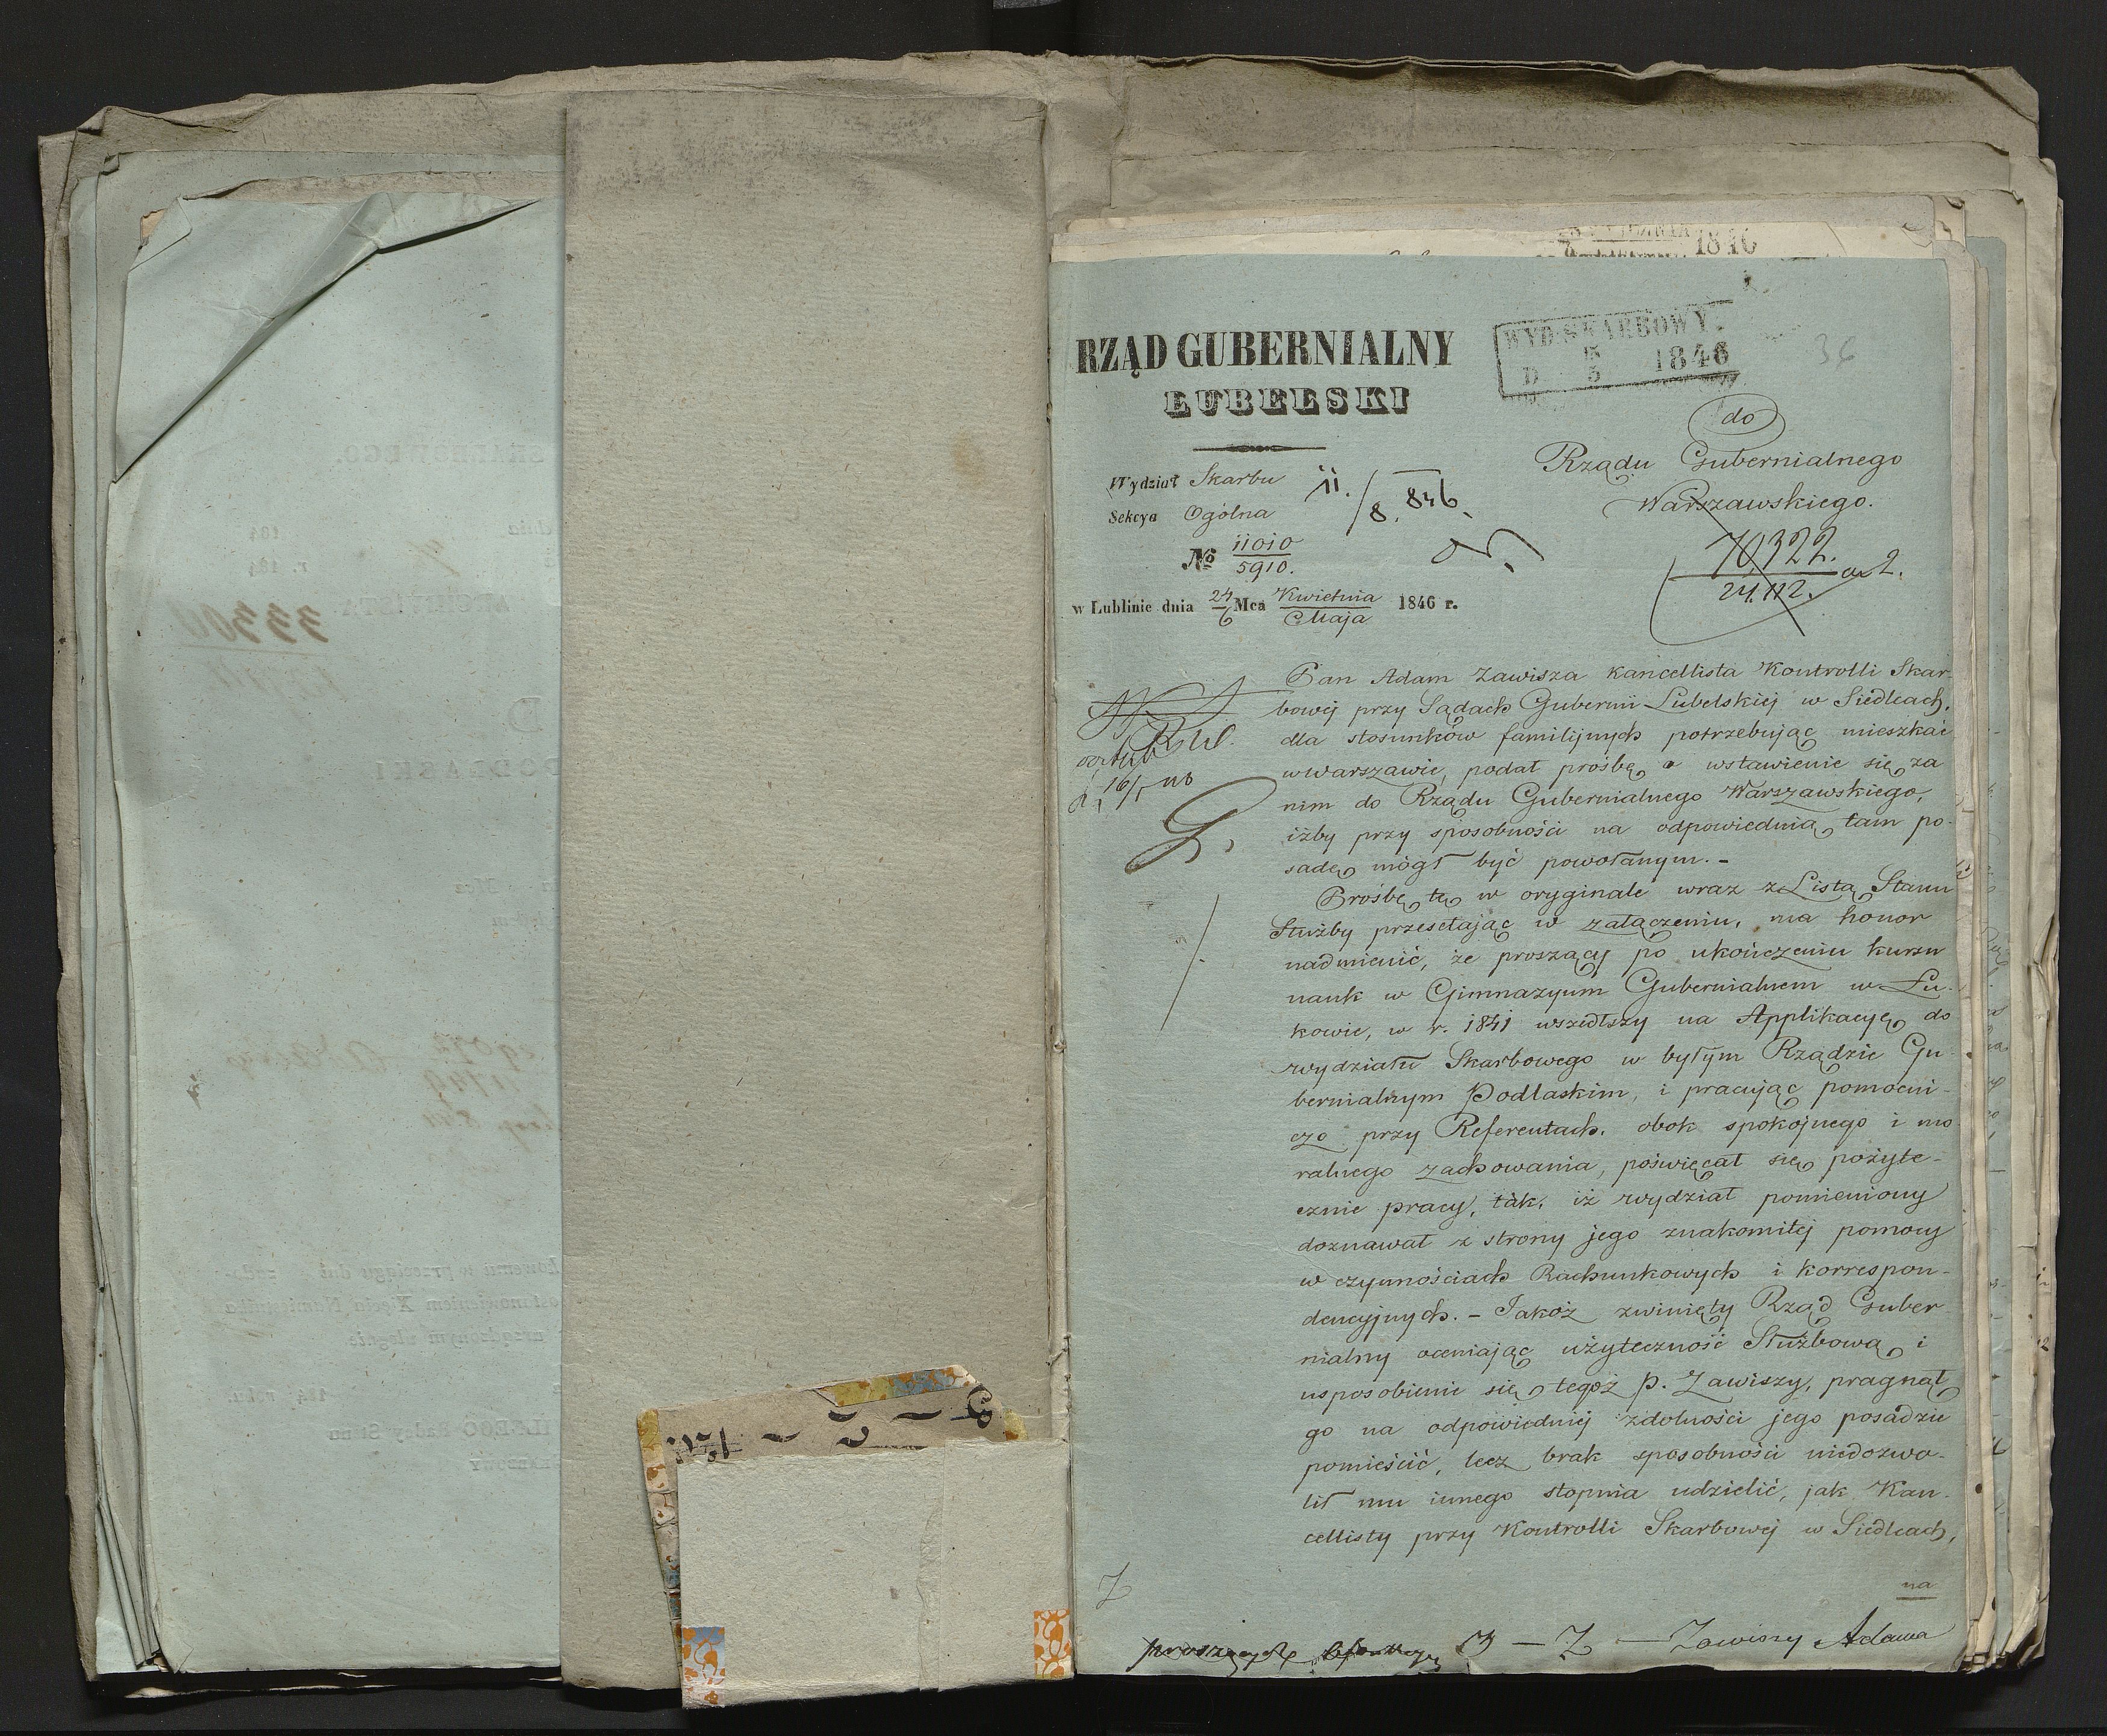 RZĄD GUBERNIALNY
LUBELSKI
WYD. SKARBOWY.
D 15/5 1846
36
do
Rządu Gubernialnego
Warszawskiego.
Wydział Skarbu
Sekcya Ogólna
11./8. 846.
№ 11010/5910.
70,322.
24.112.
w Lublinie dnia 24/6 Mca Kwietnia/Maja 1846 r.
Pan Adam Zawisza kancellista Kontrolli Skar-
bowéj przy Sądach Gubernii Lubelskiéj w Siedlcach,
dla stosunków familijnych potrzebując mieszkać
w Warszawie, podał prośbę o wstawienie się za
nim do Rządu Gubernialnego Warszawskiego,
iżby przy sposobności na odpowiednią tam po-
sadę mógł być powołanym. -
Prośbę tę w oryginale wraz z Listą Stanu
Służby przesełając w załączeniu, ma honor
nadmienić, że proszący po ukończeniu kursu
nauk w Gimnazyum Gubernialnem w Łu-
kowie, w r. 1841 wszedłszy na Applikacyę do
wydziału Skarbowego w byłym Rządzie Gu-
bernialnym Podlaskim, i pracując pomocni-
czo przy Referentach, obok spokojnego i mo-
ralnego zachowania, poświęcał się pożyte-
cznie pracy, tak, iż wydział pomieniony
doznawał z strony jego znakomitéj pomocy
w czynnościach Rachunkowych i korrespon-
dencyjnych. - Jakoż zwinięty Rząd Guber-
nialny oceniając użyteczność Służbową i
usposobienie się tegoż p. Zawiszy, pragnął
go na odpowiedniéj zdolności jego posadzie
pomieścić, lecz brak sposobności niedozwo-
lił mu innego stopnia udzielić, jak Kan-
cellisty przy Kontrolli Skarbowéj w Siedlcach,
na
Z — Zawiszy Adama